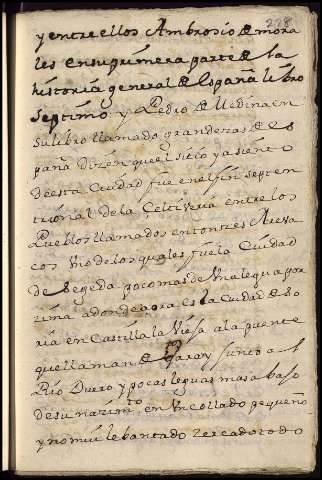 228
y entre ellos Ambrosio de mora
les en su primera parte de la
historia general de España libro
septimo y Pedro de Medina en
su libro llamado grandezas de es
paña dizen que el sitio y asiento
de esta ciudad fue en el fin septen
trional de la Celtiveria entre los
Pueblos llamados entonzes Areva
cos Uno de los quales fue la Ciudad
de Segeda poco mas de Una legua por
zima adonde aora es la Ciudad de So
ria en Castilla la Vieja a la puente
que llaman de Garay junto a el
Rio Duero y pocas leguas mas abajo
de su nazimto en Un collado pequeño
y no mui lebantado zercado todo